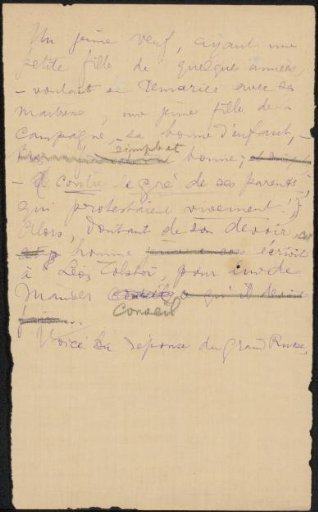 Un jeune veuf, ayant une
petite fille de quelques années,
- voulant se remarier avec sa
maitresse, une jeune fille de la
campagne, - sa bonne d'enfant, -
simple et bonne;
- Et contre le gré de ses parents
qui protestaient vivement!
Alors, doutant de son devoir, cet
homme écrivit
à Léon Tolstoï, pour lui de
mander
conseil
Voici la réponse du grand Russe,